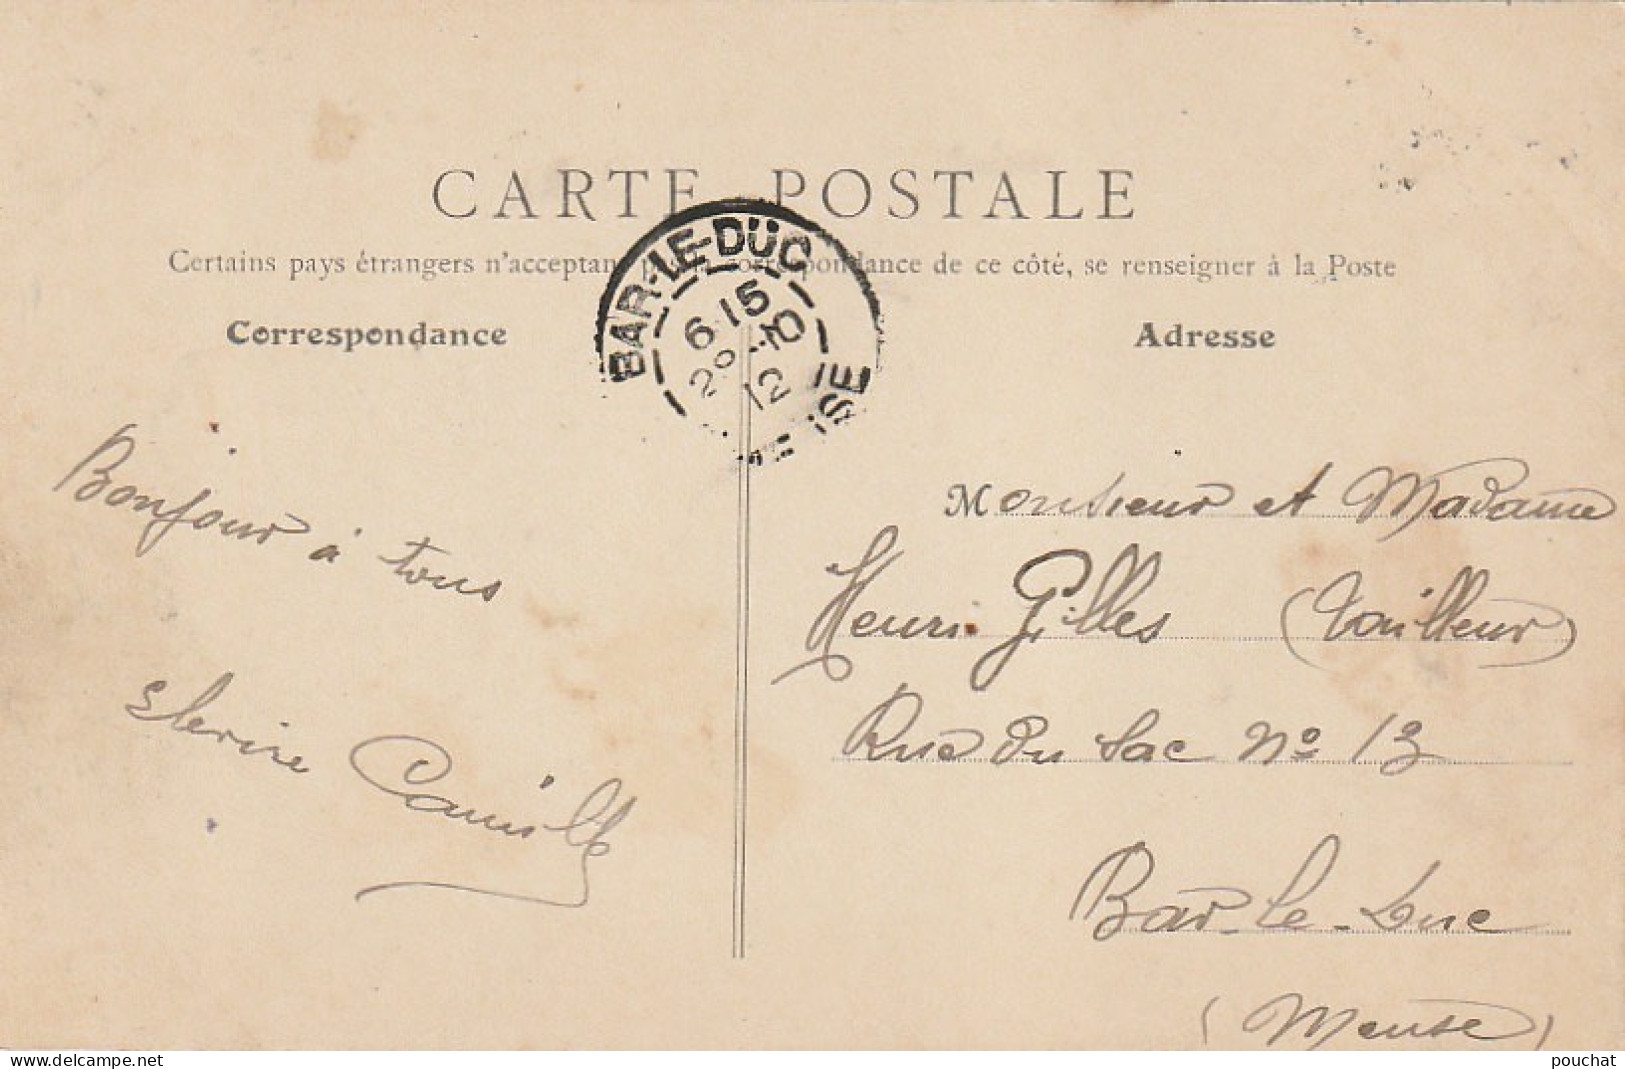 CARTE POSTALE
Certains pays étrangers n'acceptant correspondance de ce côté, se renseigner à la Poste
Correspondance
Adresse
BAR-LE-DUC
6 15
12
Bonjour à tous
Camille
Monsieur et Madame
Henri Gilles (tailleur)
Rue du Sac Nº 13
Bar-le-Duc
(Meuse)
delcampe.net
pouchat